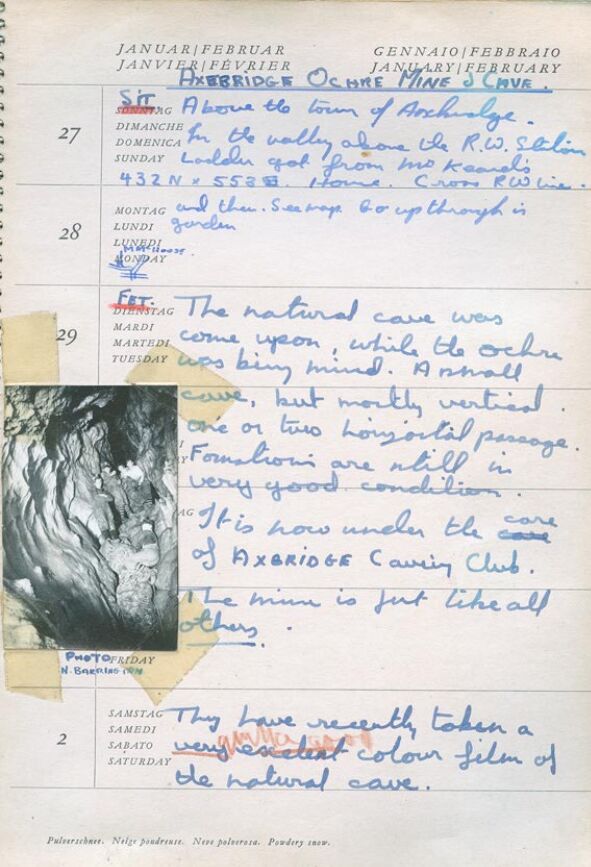 JANUAR|FEBRUAR GENNAIO|FEBBRAIO
JANVIER|FÉVRIER JANUARY|FEBRUARY
AXEBRIDGE OCHRE MINE & CAVE.
27
SIT.
SONNTAG
DIMANCHE
DOMENICA
SUNDAY
Above the town of Axbridge.
In the valley above the R.W. Station
Ladder got from Mr Keard's
432 N x 553 E. Home. Cross RW line.
28
MONTAG
LUNDI
LUNEDI
MONDAY
and then. See map. Go up through is
garden
29
FET.
DIENSTAG
MARDI
MARTEDI
TUESDAY
The natural cave was
come upon, while the ochre
was being mind. A small
cave, but mostly vertical.
one or two horizontal passage.
Formations are still in
very good condition.
It is now under the care
of AXBRIDGE Caving Club.
The mine is just like all
others.
PHOTO
N. BARRINGTON
FRIDAY
2
SAMSTAG
SAMEDI
SABATO
SATURDAY
They have recently taken a
very excelent colour film of
the natural cave.
Pulverschnee. Neige poudreuse. Neve polverosa. Powdery snow.